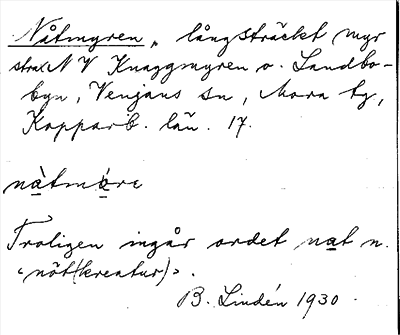 Nåtmyren, långsträckt myr
strax N V Knaggmyren o. Landbo-
byn, Venjans sn, Mora tg,
Kopparb. län. 17.
nàtmóre
Troligen ingår ordet nat n.
‹nöt(kreatur)›.
B. Lindén 1930.